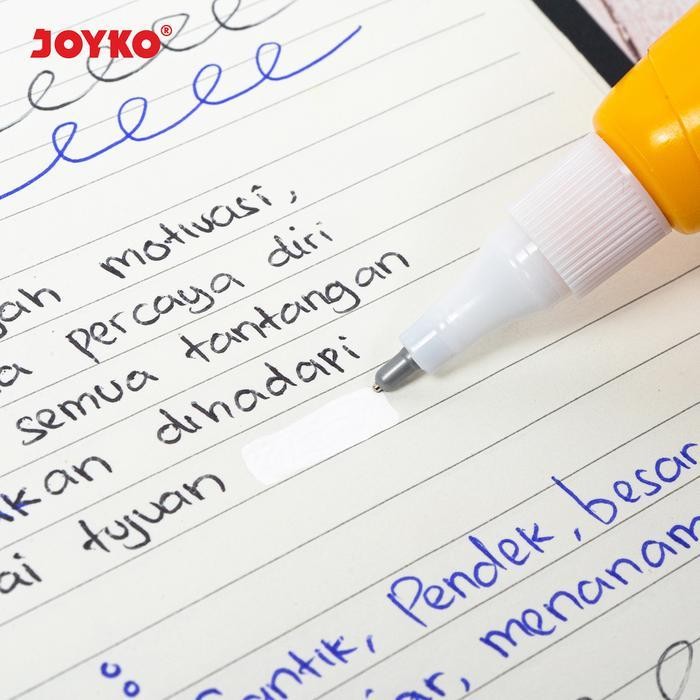 JOYKO®
motivasi,
percaya diri
semua tantangan
dihadapi
tujuan
Pendek, besar
menanam